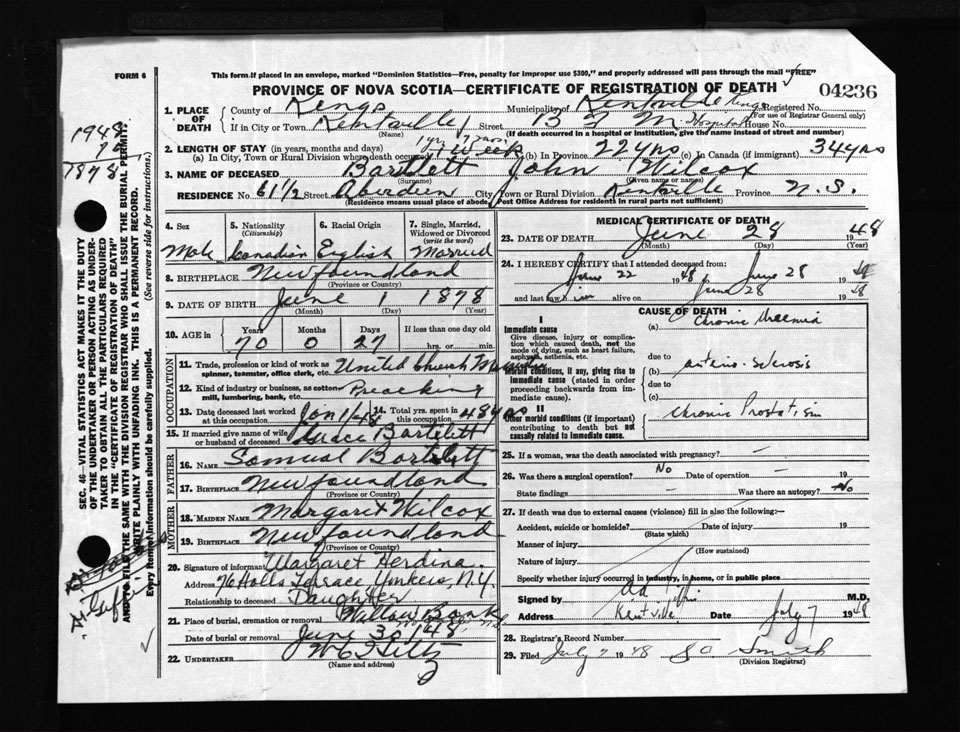 FORM 6
This form if placed in an envelope, marked "Dominion Statistics—Free, penalty for improper use $300," and properly addressed will pass through the mail "FREE"
PROVINCE OF NOVA SCOTIA—CERTIFICATE OF REGISTRATION OF DEATH
04236
1. PLACE OF DEATH
County of Kings Municipality of Kentville Kings Registered No.
(For use of Registrar General only)
If in City or Town Kentville Street B F M Hospital House No.
(Name) (If death occurred in a hospital or institution, give the name instead of street and number)
2. LENGTH OF STAY (in years, months and days)
(a) In City, Town or Rural Division where death occurred 1 week (b) In Province 22 yrs (c) In Canada (if immigrant) 34 yrs
3. NAME OF DECEASED Bartlett John Wilcox
(Surname) (Given name or names)
RESIDENCE No. 61½ Street Aberdeen City, Town or Rural Division Kentville Province N.S.
(Residence means usual place of abode. Post Office Address for residents in rural parts not sufficient)
4. Sex 5. Nationality (Citizenship) 6. Racial Origin 7. Single, Married, Widowed or Divorced (write the word)
Male Canadian English Married
8. BIRTHPLACE Newfoundland
(Province or Country)
9. DATE OF BIRTH June 1 1878
(Month) (Day) (Year)
10. AGE in Years Months Days If less than one day old
70 0 27 hrs. or min.
OCCUPATION
11. Trade, profession or kind of work as spinner, teamster, office clerk, etc. United Church Minister
12. Kind of industry or business, as cotton mill, lumbering, bank, etc. Preaching
13. Date deceased last worked at this occupation Jan 1/48 14. Total yrs. spent in this occupation 48 yrs
15. If married give name of wife or husband of deceased Grace Bartlett
FATHER
16. NAME Samual Bartlett
17. BIRTHPLACE Newfoundland
(Province or Country)
MOTHER
18. MAIDEN NAME Margaret Wilcox
19. BIRTHPLACE Newfoundland
(Province or Country)
20. Signature of informant Margaret Herdina.
Address 76 Halls Terrace Yonkers, N.Y.
Relationship to deceased Daughter
21. Place of burial, cremation or removal Willow Bank
Date of burial or removal June 30/48
22. UNDERTAKER W C Hiltz
(Name and address)
MEDICAL CERTIFICATE OF DEATH
23. DATE OF DEATH June 28 1948
(Month) (Day) (Year)
24. I HEREBY CERTIFY that I attended deceased from:
June 22 1948 to June 28 1948
and last saw him alive on June 28 1948
CAUSE OF DEATH
I
Immediate cause
Give disease, injury or complication which caused death, not the mode of dying, such as heart failure, asphyxia, asthenia, etc.
(a) Chronic Uraemia
due to
Morbid conditions, if any, giving rise to immediate cause (stated in order proceeding backwards from immediate cause).
(b) arterio-sclerosis
due to
(c)
II
Other morbid conditions (if important) contributing to death but not causally related to immediate cause.
Chronic Prostatism
25. If a woman, was the death associated with pregnancy? –
26. Was there a surgical operation? No Date of operation – 19
State findings – Was there an autopsy? No
27. If death was due to external causes (violence) fill in also the following:—
Accident, suicide or homicide? Date of injury 19
(State which)
Manner of injury
(How sustained)
Nature of injury
Specify whether injury occurred in industry, in home, or in public place
Signed by M.D.
Address Kentville Date July 7 1948
28. Registrar's Record Number
29. Filed July 7 1948 Smith
(Division Registrar)
1948
78
1878
SEC. 46—VITAL STATISTICS ACT MAKES IT THE DUTY
OF THE UNDERTAKER OR PERSON ACTING AS UNDERTAKER TO OBTAIN ALL THE PARTICULARS REQUIRED
IN THE "CERTIFICATE OF REGISTRATION OF DEATH"
AND TO FILE THE SAME WITH THE DIVISION REGISTRAR WHO SHALL ISSUE THE BURIAL PERMIT.
WRITE PLAINLY WITH UNFADING INK. THIS IS A PERMANENT RECORD.
Every item of information should be carefully supplied. (See reverse side for instructions.)